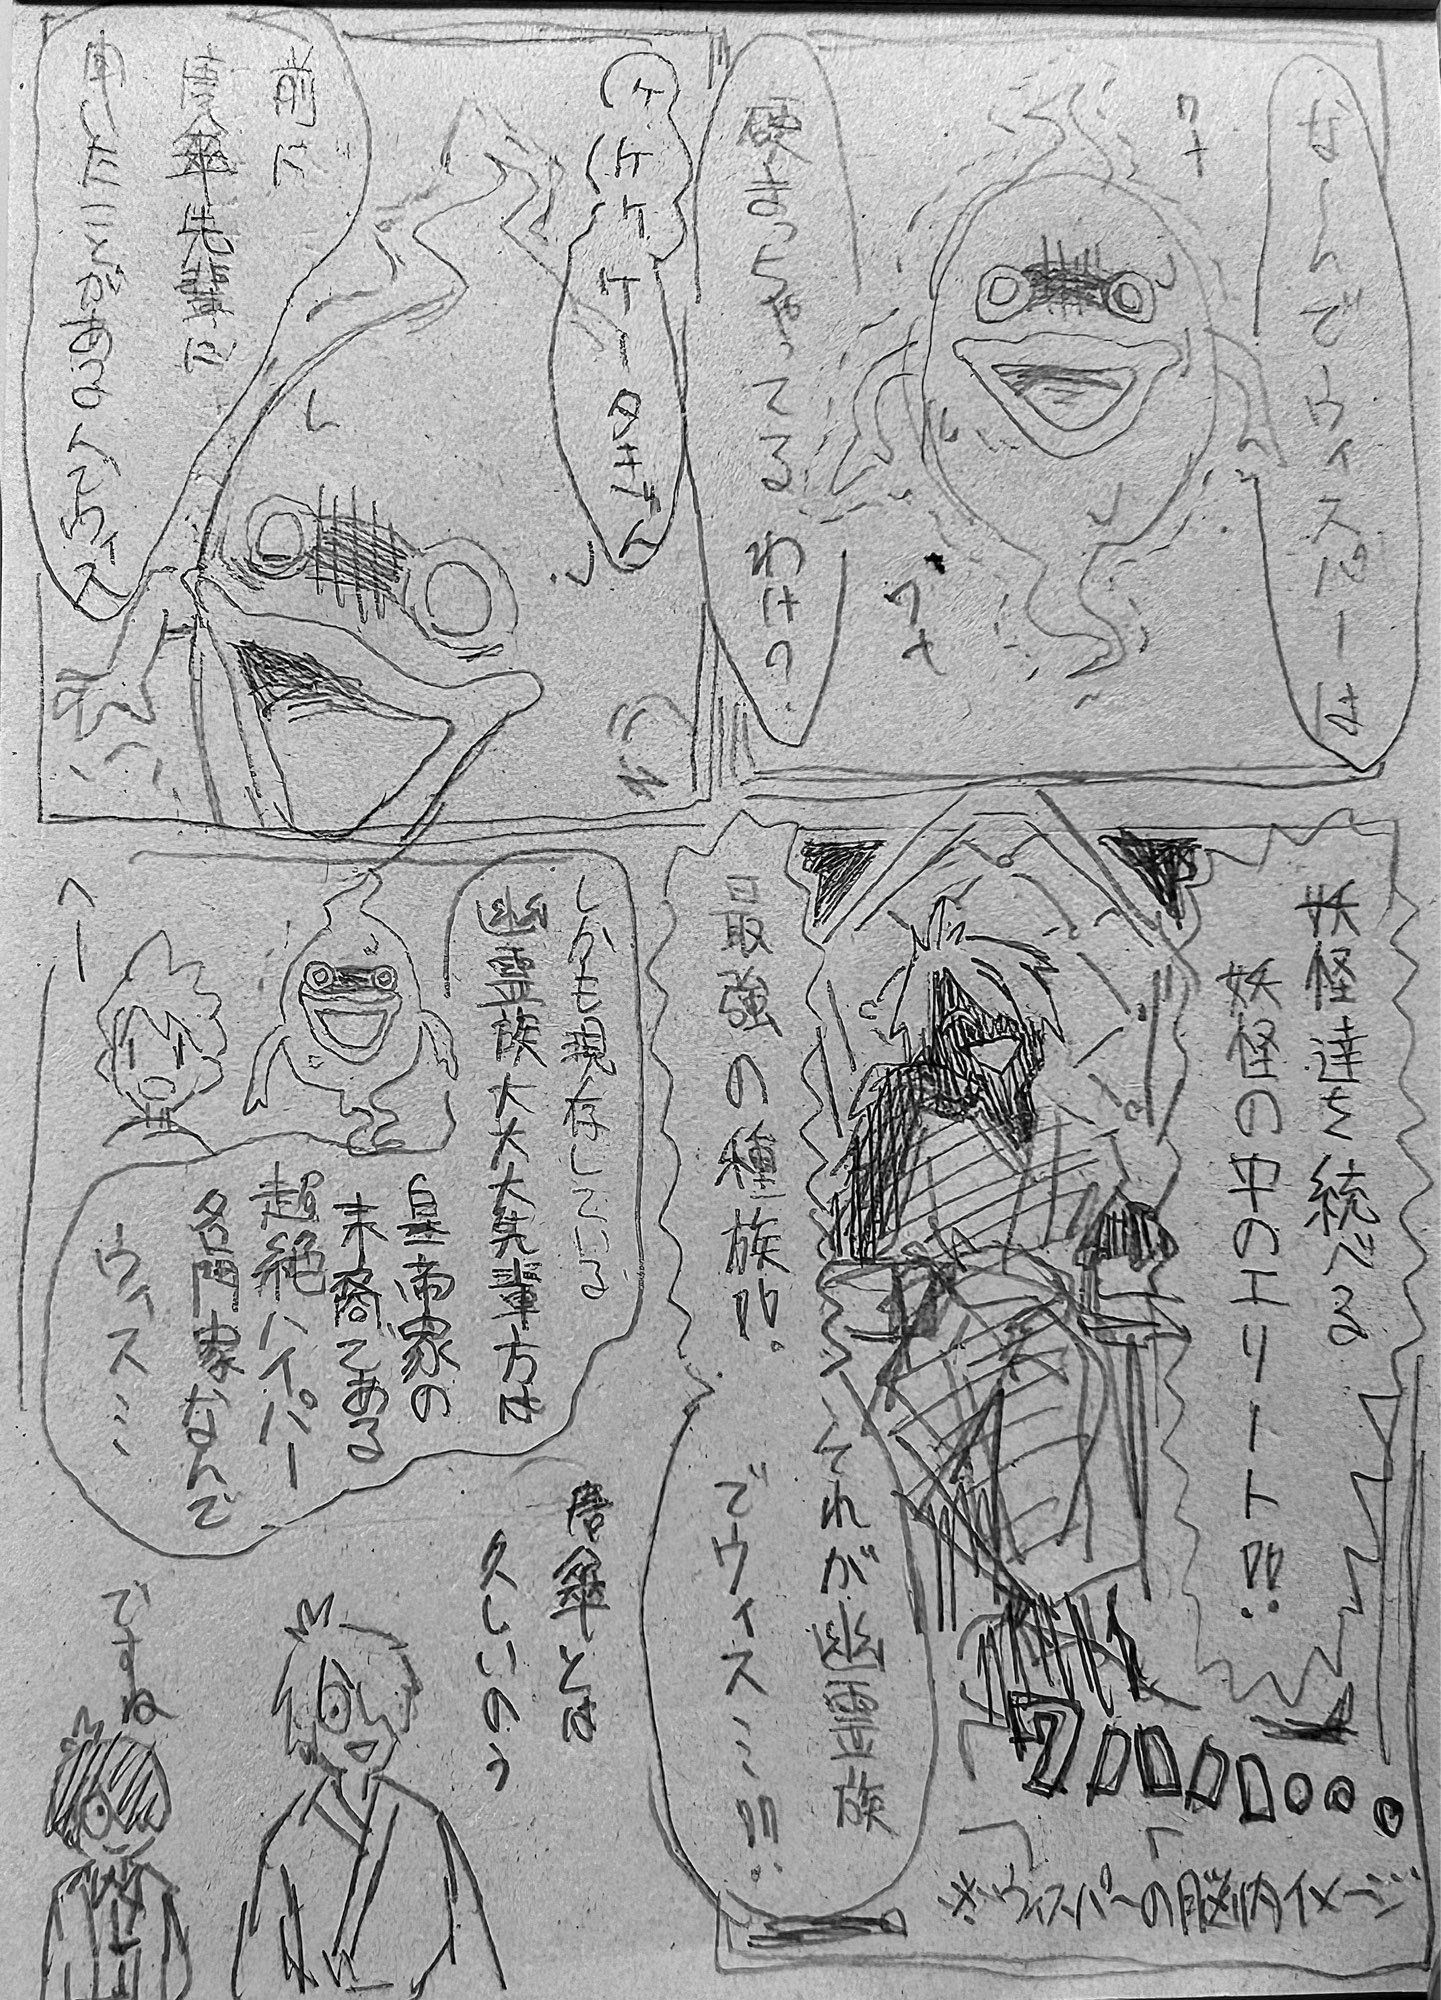 な〜んでウィスパーは
ワナ
硬まっちゃってるわけ?
ワナ
ケケケケータきゅん
前に
唐傘先輩に
申したことがあるでウィス
妖怪達を統べる
妖怪の中のエリート!!
最強の種族!!
それが幽霊族
でウィスミ!!!
※ウィスパーの脳内イメージ
しかも現存している
幽霊族大大大先輩方は
皇帝家の
末裔である
超絶ハイパー
名門家なんで
ウィスミミ
へー
唐傘とは
久しいのう
ですね